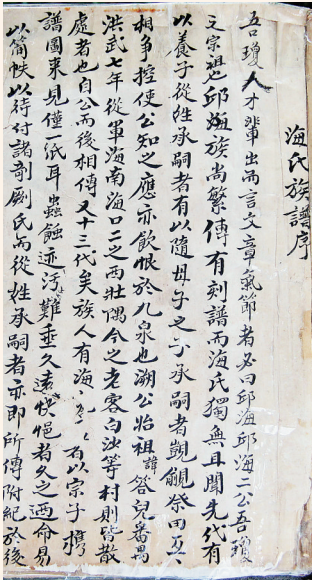 海氏族譜序
吾瓊人才輩出而言文章氣節者必曰邱海邱海二公吾瓊
之宗祖也邱海族尚繁傳有刻譜而海氏獨無且聞先代有
以養子從姓承嗣者有以隨母子之子承嗣者覬覦祭田互
相爭控使公知之應亦飲恨於九泉也溯公始祖諱答兒番禺
洪武七年從軍海南海口二之西壯隅今之老客白沙等村則皆散
處者也自公而後相傳又十三代矣族人有海 有以宗子携
譜圖來見僅一紙耳蟲蝕迹污難垂久遠怏悒者久之迺命易
以簡帙以待付諸剞劂氏而從姓承嗣者亦即所傳附紀於後